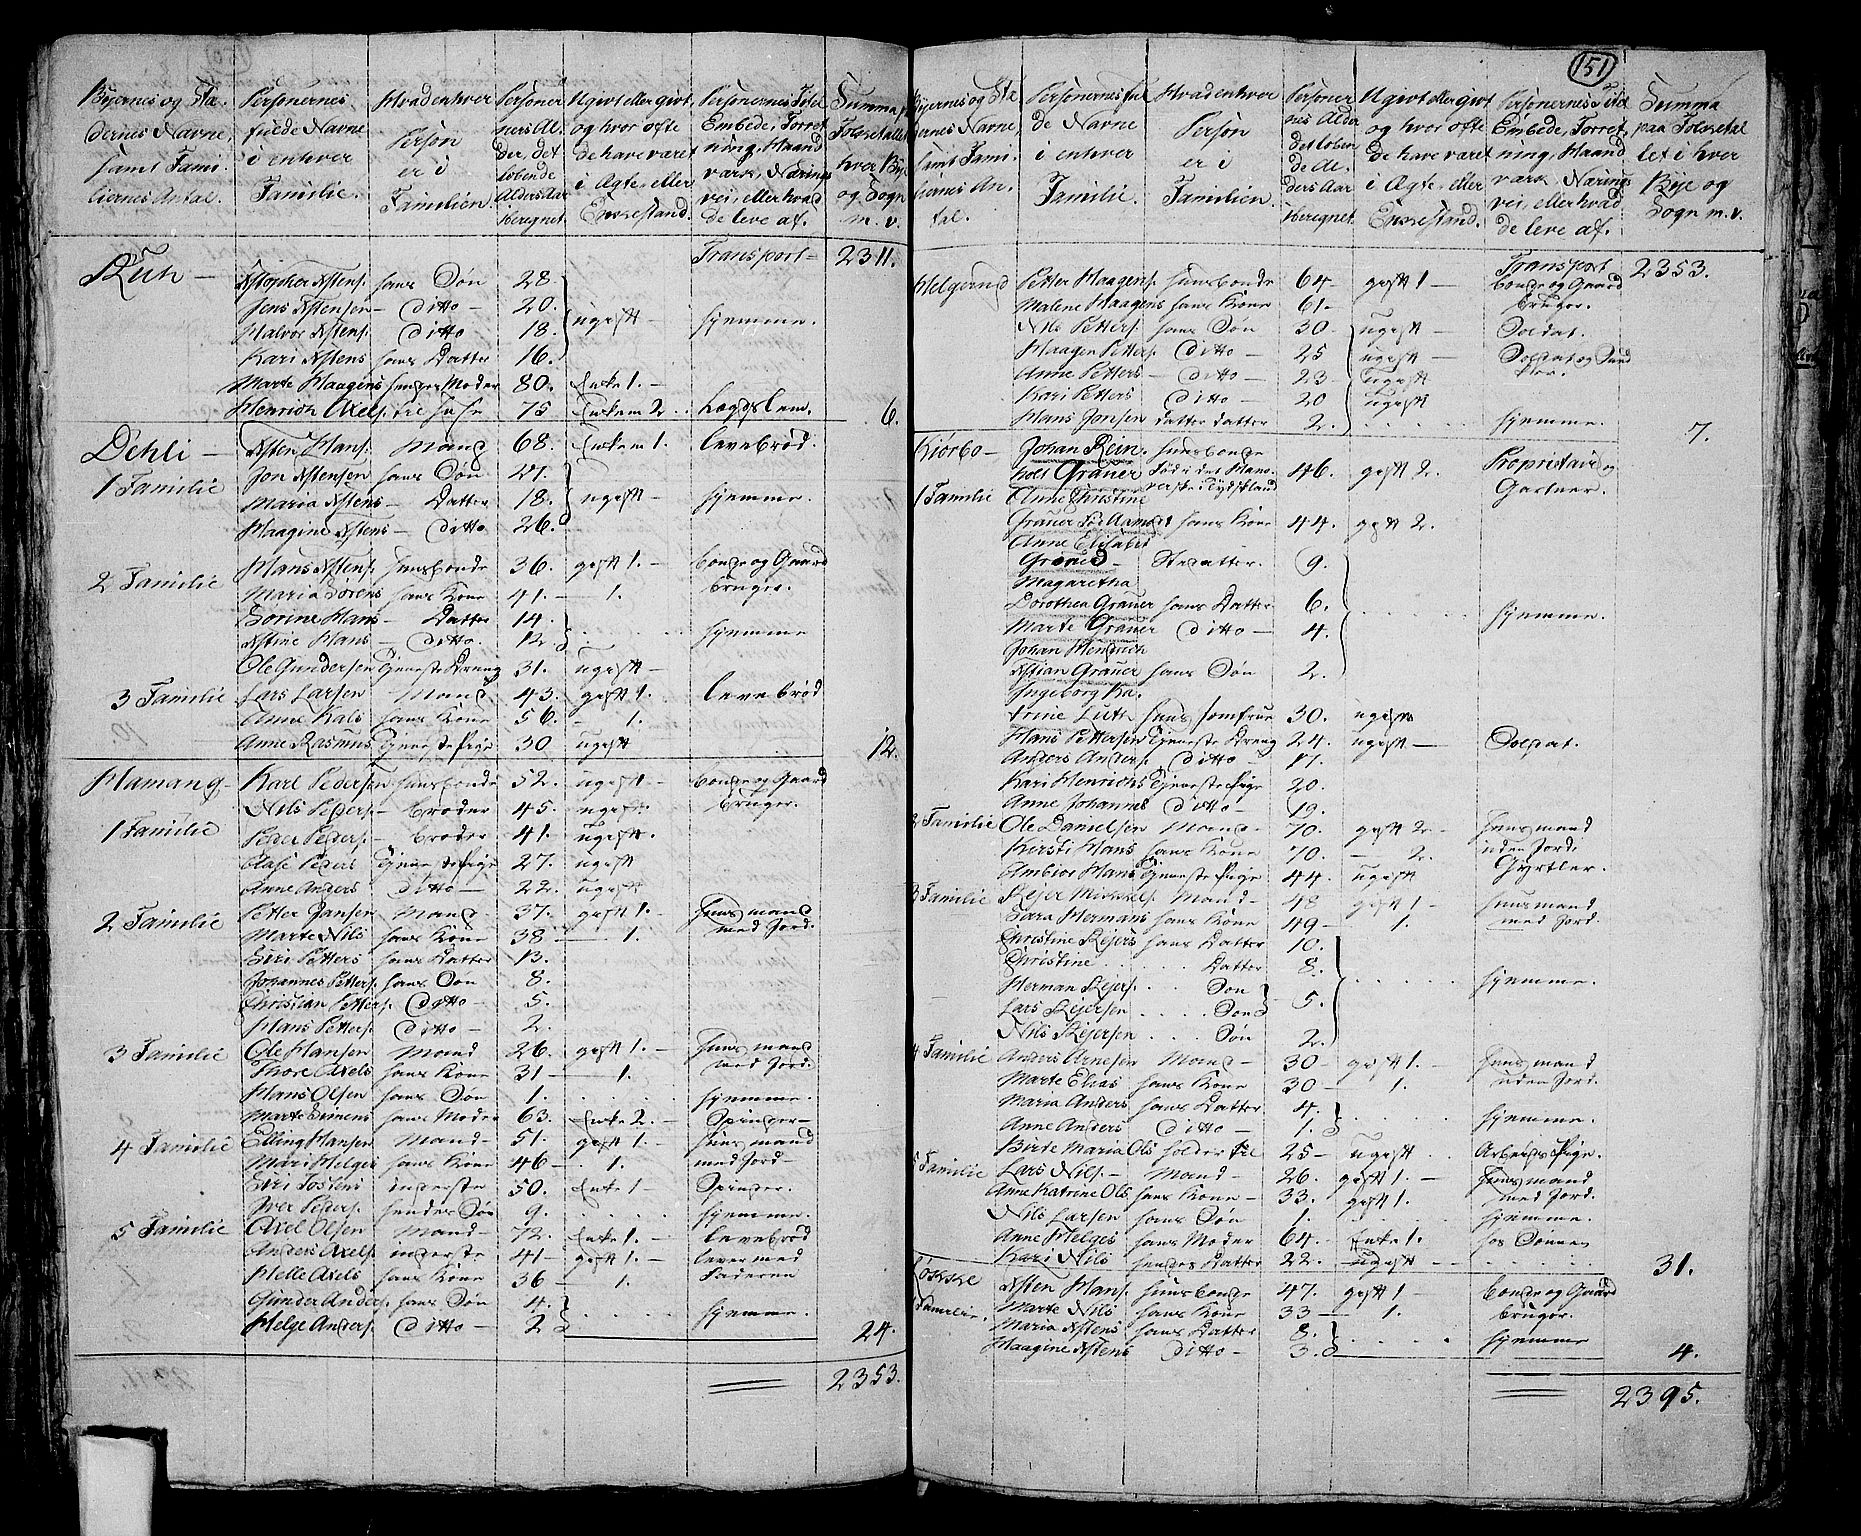 151
Byernes og Stædernes Navne, samt Familiernes Antal.
Personernes fulde Navne i enhver Familie.
Hvad enhver Person er i Familien
Personernes Alder, det løbende Alders Aar iberegnet
Ugivt eller givt, og hvor ofte de have været i Ægte- eller Enkestand.
Personernes Titel Embede, Forretning, Haandværk, Næringsvei, eller hvad de leve af.
Summa paa Folketallet i hver Bye og Sogn m. v.
Transport — 2311.
Rud — Kstopher Astens. hans Søn 28
Jens Astensen — Ditto — 20.
Halvor Astens. Ditto 18. ugift — hjemme.
Kari Astens hans Datter 16.
Marte Haagens hendes Moder 80. Enke 1. —
Henrich Axels. til huse 75 Enkem 2. Lægdslem. 6.
Dehli — Asten Hans. Mand 68. Enkem 1. levebrød.
1 Familie Jon Astensen hans Søn 21.
Maria Astens — Datter 18. ugift — hjemme.
Haagine Astens — Ditto 26.
2 Familie Hans Astens. huusbonde 36. gift 1. bonde og Gaardbruger.
Maria Sørens hans Kone 41. — 1.
Sørine Hans — Datter 14.
Astine Hans — Ditto. 12. hjemme
Ole Gundersen Tjeneste Dreng 31. ugift —
3 Familie Lars Larsen Mand 43. gift 1. levebrød
Anne Kals hans Kone 56. — 1.
Anne Rasmus Tjeneste Pige 30 ugift 12.
Hamang — Karl Pedersen huusbonde 52. ugift — bonde og Gaardbruger.
Nils Peders. — broder 45. ugift.
1 Familie Peder Peders. — broder 41. ugift.
Peders Tjeneste Pige 27. ugift
Anne Anders Ditto — 22. ugift
2 Familie Petter Jansen Mand — 37. gift 1. — huusmand med Jord.
Marte Nils hans Kone 38 — 1.
Siri Petters hans Datter 13.
Johannes Petters. hans Søn 8.
Christian Petters. Ditto — 5.
Hans Petters. Ditto — 2.
3 Familie Ole Hansen Mand 26. gift 1. — huusmand med Jord.
Thore Axels hans Kone 31 — 1.
Hans Olsen hans Søn 1. hjemme.
Marte Simens hans Moder 63. Enke 2. — Spinder —
4 Familie Elling Hansen Mand — 51. gift 1. — huusmand med Jord —
Mari Helges hans Kone 46 — 1.
Siri Tostens inderste 50. Enke 1 — Spinder.
Iver Peders. hendes Søn 9. hjemme.
5 Familie Axel Olsen Mand — 72. Enke 1. — levebrød
Anders Axels. inderste 41 — gift 1. — lever med
Helle Axels hans Kone 36 — 1. Faderen
Gunder Anders. hans Søn 4.
Helge Anders. Ditto — 2 hjemme. 24.
2353.
Byernes og Stædernes Navne, samt Familiernes Antal.
Personernes fulde Navne i enhver Familie.
Hvad enhver Person er i Familien.
Personernes Alder det løbende Alders Aar iberegnet.
Ugivt eller givt og hvor ofte de have været i Ægte- eller Enkestand.
Personernes Titel Embede, Forretning, Haandværk, Næringsvei, eller hvad de leve af.
Summa paa Folketallet i hver Bye og Sogn m. v.
Transport 2353.
Helgerud Petter Haagens. huusbonde 64 — gift 1 — bonde og Gaardbruger.
Malene Haagens hans Kone 61 —
Nils Petters. hans Søn 30. ugift — Soldat.
Haagen Petters. Ditto — 25 ugift — Soldat og
Anne Petters — Ditto — 23 — ugift
Kari Petters Ditto — 20 ugift
Hans Jonsen datter datter 2. hjemme. 7.
Kiørbo — Johan Rein- huusbonde
holt Grauer født i det Hanoverske i Tydskland 46. gift 2. Proprietair og Gartner.
1 Familie Anne Christine
Grauer født hans Kone 44. gift 2.
Anne Elisabet
Grøned — Stedatter. 9.
Magaretha
Dorothea Grauer hans Datter 6. hjemme.
Marte Grauer Ditto — 4.
Johan Hendrich
Kstian Grauer hans Søn 2.
Ingeborg Ka-
trine Luth huus Jomfrue 30. ugift
Hans Pettersen Tjeneste Dreng 24. ugift — Soldat.
Anders Anders. Ditto — 17.
Kari Henrichs Tjeneste Pige 20.
Anne Johannes Ditto — 19.
2 Familie Ole Danielsen Mand — 70. gift 2 — huusmand uden Jord.
Kirsti Hans hans Kone 70. — 2. Gyrtler.
Ambior Hans Tjeneste Pige 44. ugift
3 Familie Rejer Mickels. Mand — 48 gift 1 — huusmand med Jord.
Sara Hermans hans Kone 49 — 1.
Christine Rejers hans Datter 10.
Christine Datter 8. hjemme.
Herman Rejers. Søn
Lars Rejersen Søn 5.
Nils Rejersen Søn 2.
4 Familie Anders Arnesen Mand — 30 — gift 1. huusmand uden Jord.
Marte Elias hans Kone 30 — 1.
Maria Anders hans Datter 4. hjemme.
Anne Anders Ditto — 1.
Birde Maria Ols holder til 25 — ugift Arbeids Pige.
5 Familie Lars Nils. — Mand — 26. gift 1. huusmand med Jord.
Anne Katrine Ols hans Kone — 33. gift 1.
Nils Larsen hans Søn 1. hjemme.
Anne Helges hans Moder 64. Enke 1. hos Sønnen
Kari Nils hendes Datter 22. ugift 31.
1 Familie. Asten Hans. huusbonde 47. gift 1 — bonde og Gaardbruger.
Marte Nils hans Kone 33 — 1.
Maria Astens hans Datter 8. hjemme
Haagine Astens Ditto — 3. 4.
2395.